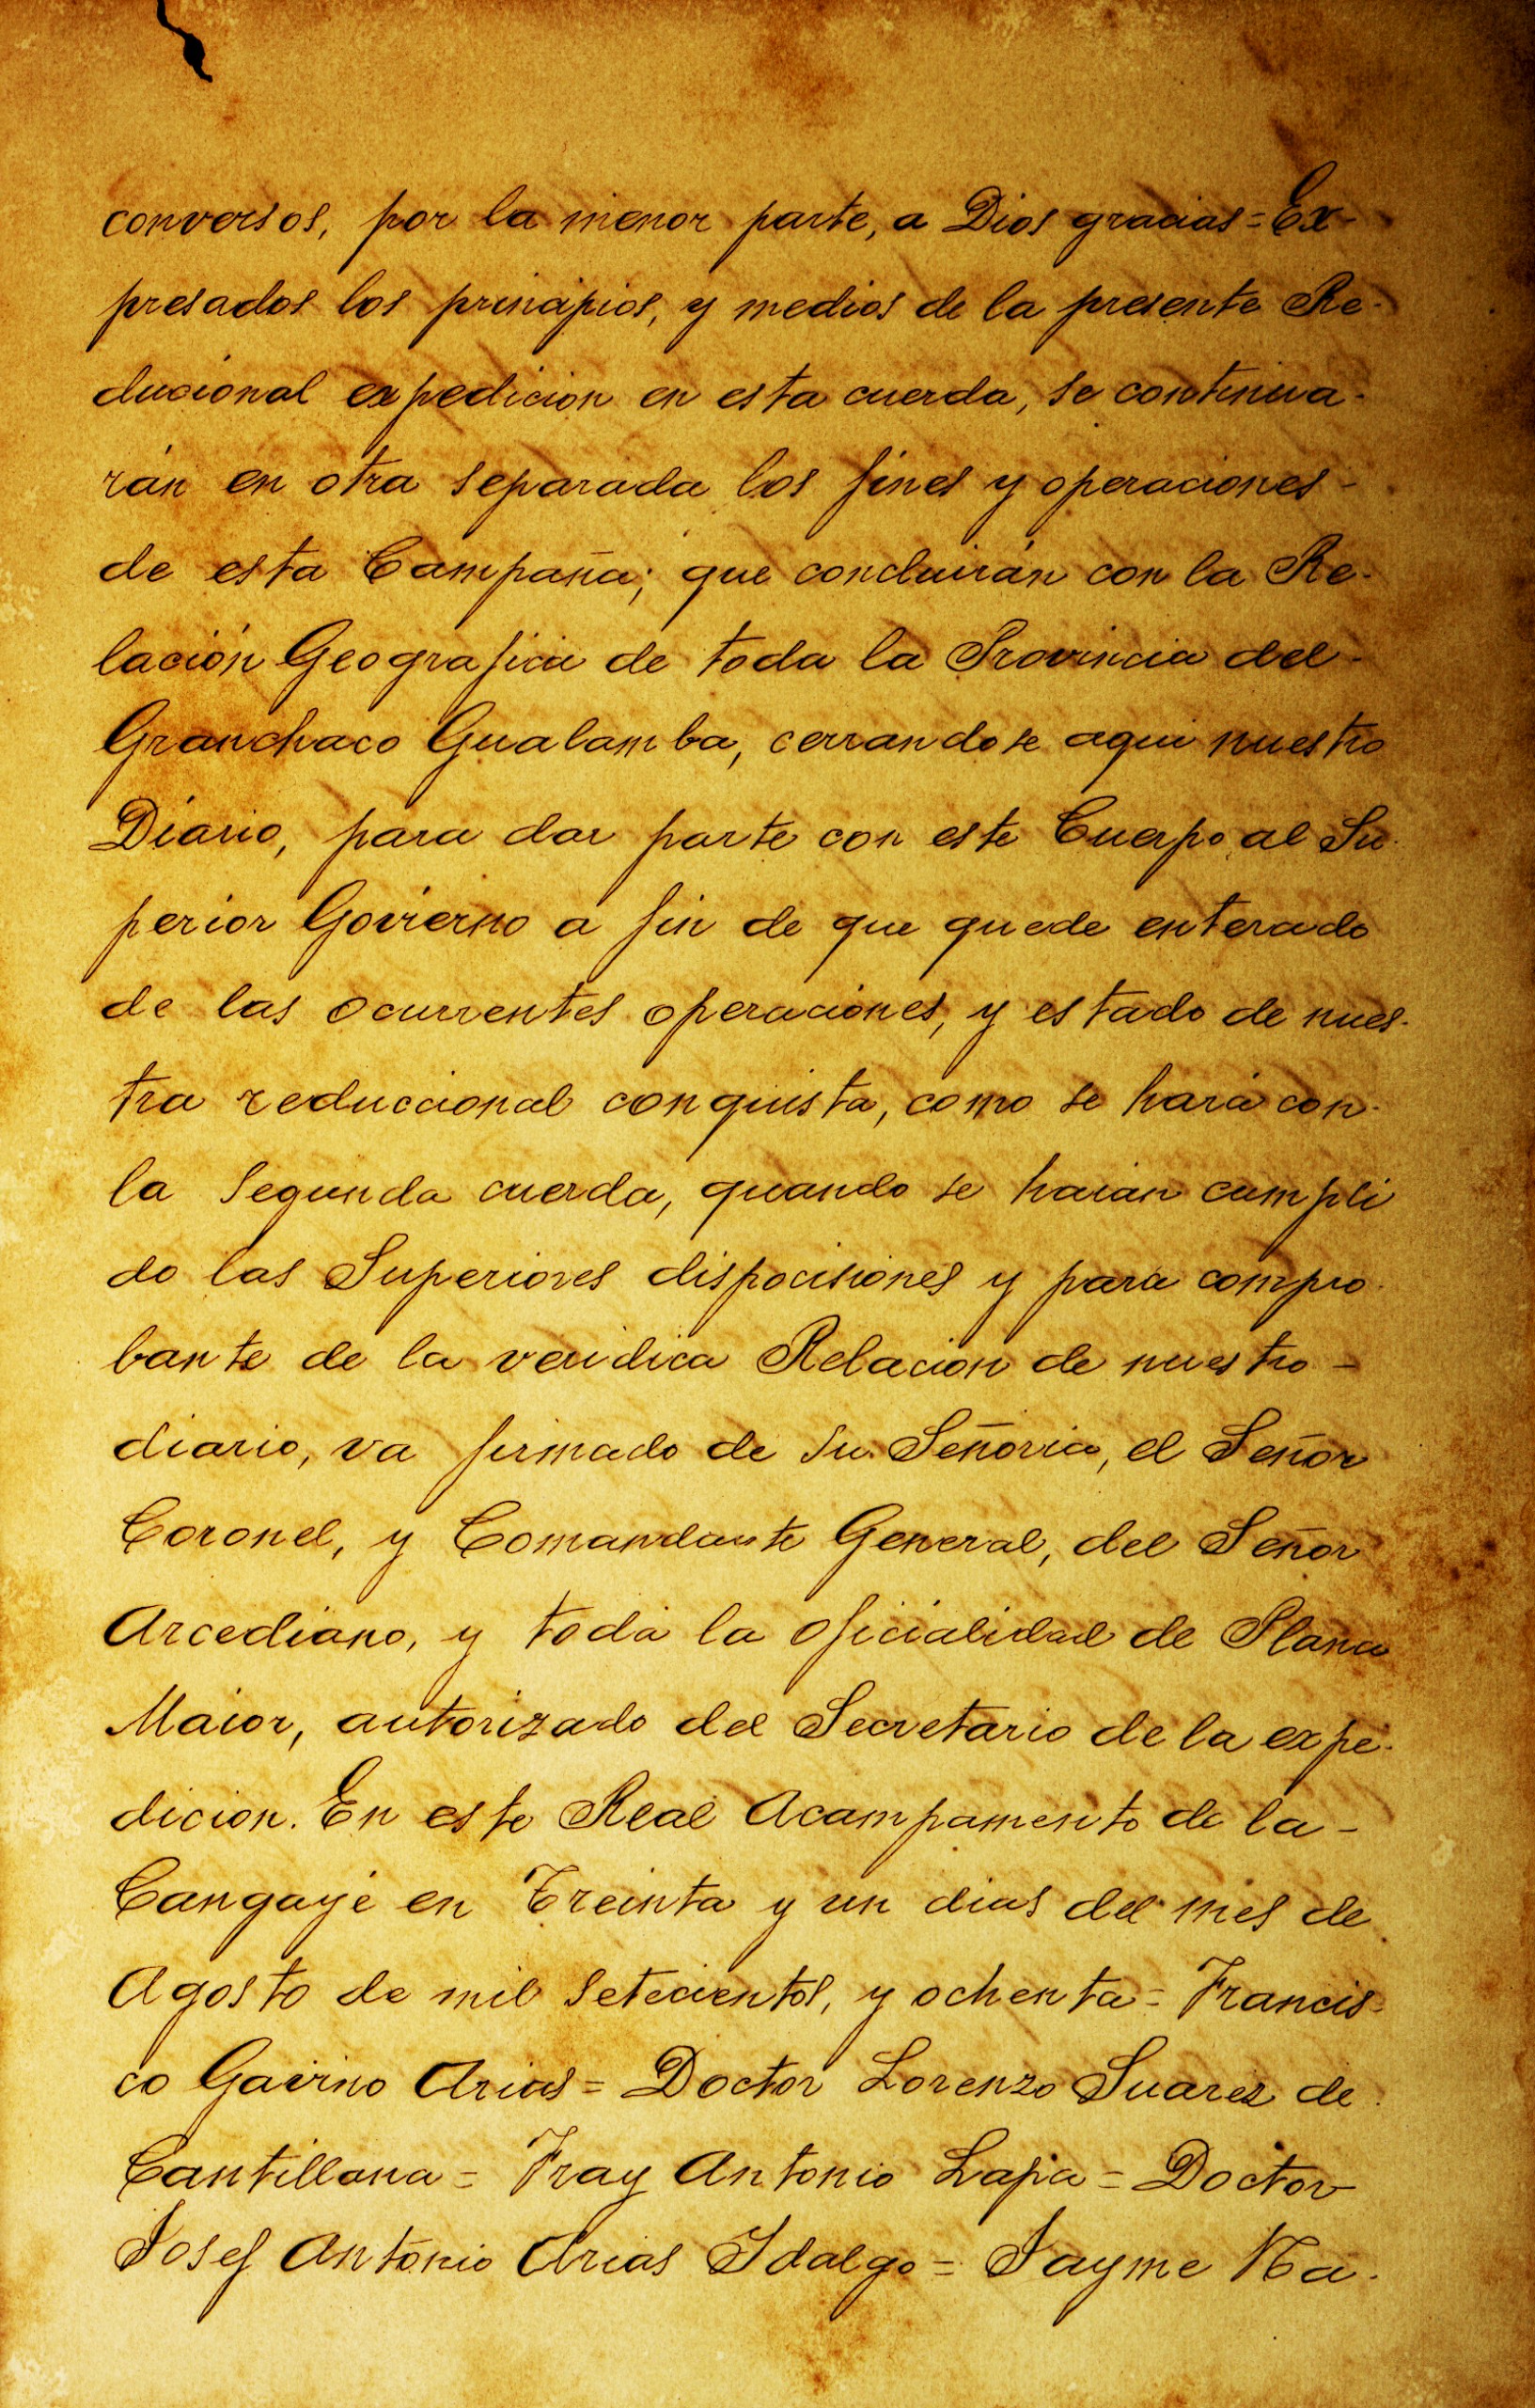 conversos, por la menor parte, a Dios gracias = Ex-
presados los principios, y medios de la presente Re-
ducional expedicion en esta cuerda, se continua-
rán en otra separada los fines y operaciones -
de esta Campaña; que concluirán con la Re-
lación Geografica de toda la Provincia del -
Granchaco Gualamba, cerrandose aqui nuestro
Diario, para dar parte con este Cuerpo al Su-
perior Govierno a fin de que quede enterado
de las ocurrentes operaciones, y estado de nues-
tra reduccional conquista, como se hará con-
la segunda cuerda, quando se haian cumpli
do las Superiores dispocisiones y para compro-
bante de la veridica Relacion de nuestro -
diario, va firmado de su Señoria, el Señor
Coronel, y Comandante General, del Señor
Arcediano, y toda la oficialidad de Plana
Maior, autorizado del Secretario de la expe-
dicion. En este Real Acampamento de la -
Cangayé en Treinta y un dias del mes de
Agosto de mil setecientos, y ochenta = Francis-
co Gavino Arias = Doctor Lorenzo Suarez de
Cantillana = Fray Antonio Lapa = Doctor
Josef Antonio Arias Idalgo = Jayme Na-